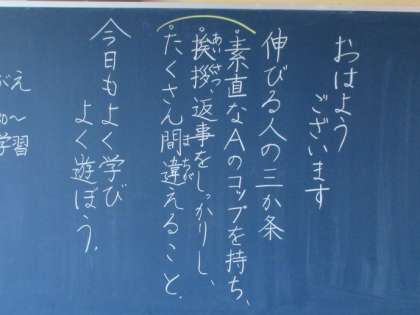 おはよう
ございます
伸びる人の三か条
・素直なAのコップを持ち、
・挨拶返事をしっかりし、
あいさつ
・たくさん間違えること.
まちが
今日もよく学び
よく遊ぼう.
がえ
学習